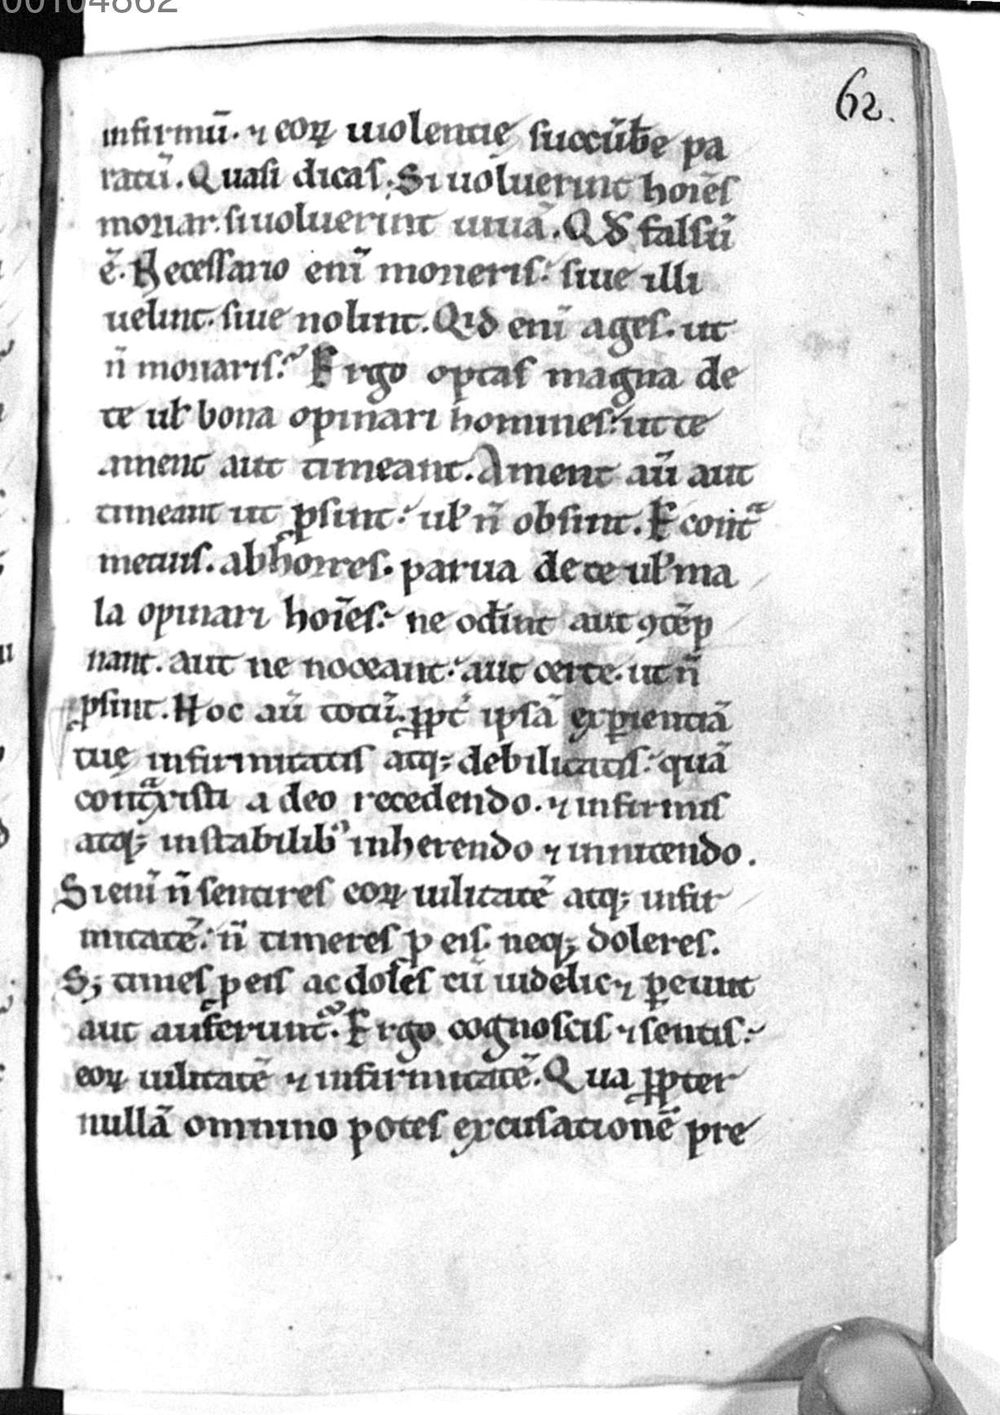 00104862
62.
infirmū. ⁊ eoꝝ uiolentię succūbe pa
ratū. Quasi dicas. Si uoluerint hoīes
moriar. si uoluerint uiuā. Qđ falsū
ē. Necessario enī morieris. siue illi
uelint. siue nolint. Qid enī ages. ut
n̄ moriaris. Ergo optas magna de
te ul bona opinari homines. ut te
ament aut timeant. Ament aū aut
timeant ut ꝓsint. ul n̄ obsint. E contͣ
metuis. abhorres. parua de te ul ma
la opinari hoīes. ne oderint aut ꝯtēp
nant. aut ne noceant. aut certe. ut n̄
ꝓsint. Hoc aū totū. ꝓpt̄ ipsā exꝑientiā
tuę infirmitatis atq; debilitatis. quā
contͣxisti a deo recedendo. ⁊ infirmis
atq; instabilib; inherendo ⁊ innitendo.
Si enī n̄ sentires eoꝝ uilitatē atq; infir
mitatē. n̄ timeres ꝓ eis. neq; doleres.
S; times ꝓ eis ac doles cū uidelic⁊ ꝑeunt
aut auferunt᷑. Ergo cognoscis ⁊ sentis.
eoꝝ uilitatē ⁊ infirmitatē. Qua ꝓpter
nullā omnino potes excusationē pre